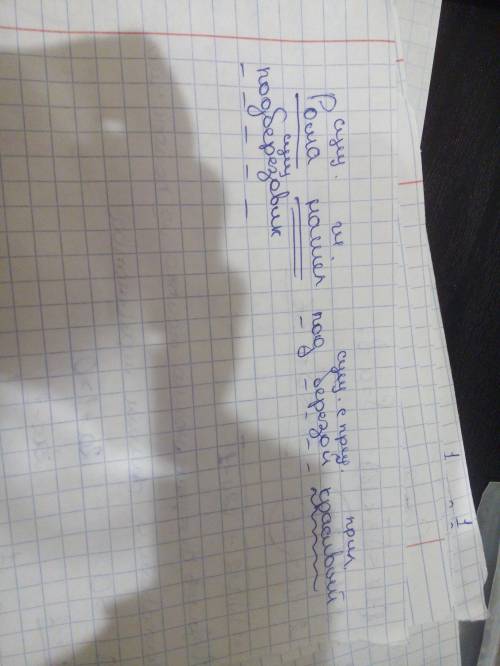 сущ. гл. сущ. с предл. прил
Рома нашел под березой красивый
сущ
подберезовик
1 1